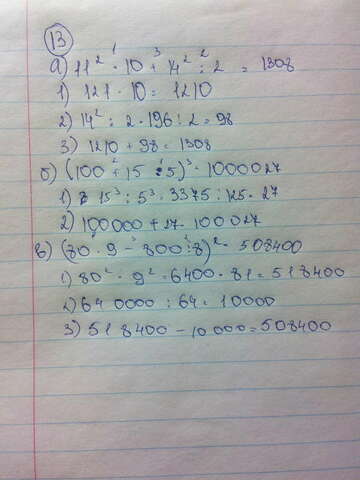 13
а) 11² · 10 + 14² : 2 = 1308
1) 121 · 10 = 1210
2) 14² : 2 · 196 : 2 = 98
3) 1210 + 98 = 1308
б) (100 + 15 : 5)³ · 1000027
1) 15³ : 5³ · 3375 : 125 · 27
2) 100000 + 27 · 100027
в) (80 · 9 - 800 : 8)² · 508400
1) 80² · 9² = 6400 · 81 = 518400
2) 640000 : 64 = 10000
3) 518400 - 10000 = 508400